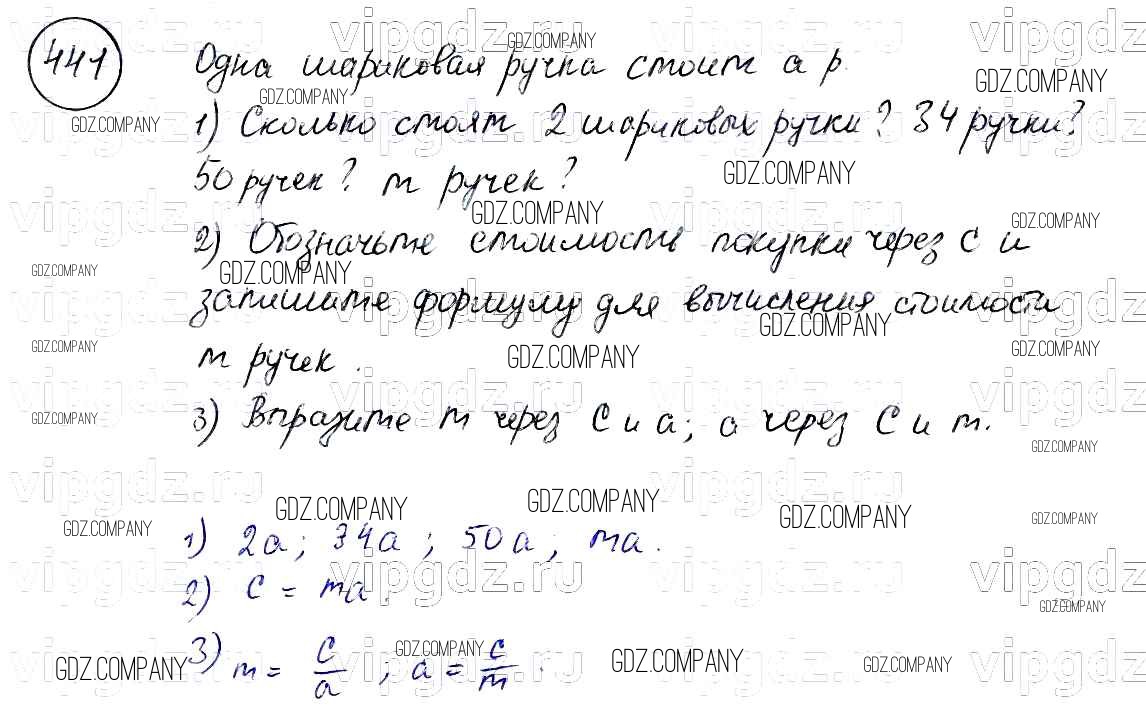 441
Одна шариковая ручка стоит a р.
1) Сколько стоят 2 шариковых ручки? 34 ручки?
50 ручек? m ручек?
2) Обозначьте стоимость покупки через C и
запишите формулу для вычисления стоимости
m ручек.
3) Выразите m через C и a; a через C и m.
1) 2a; 34a; 50a; ma.
2) C = ma
3) m = C/a; a = C/m.
vipgdz.ru
GDZ.COMPANY